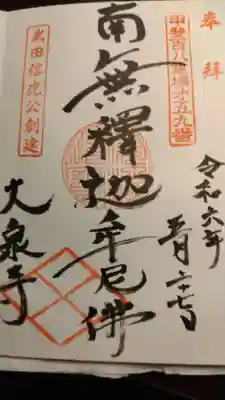 奉拝
甲斐百八霊場才五九番
令和六年
五月二十七日
南無釋迦牟尼佛
武田信虎公創建
大泉寺